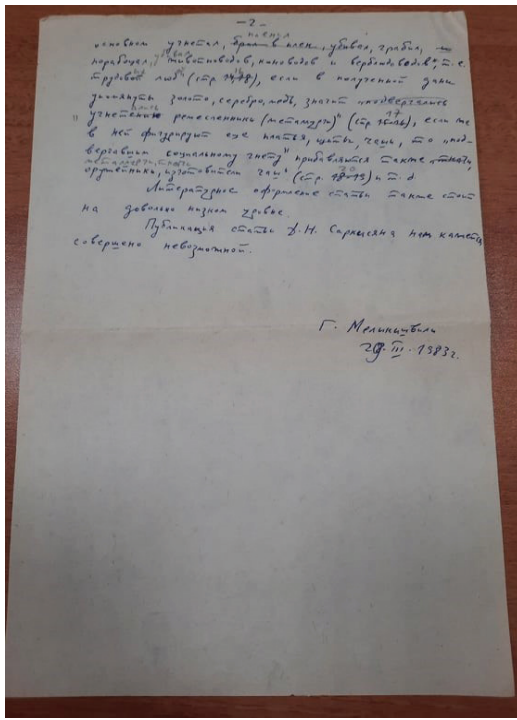 — 2 —
пленял
основном угнетал, брал в плен, убивал, грабил,
порабощал, животноводов, коневодов и верблюдоводов", т.е.
трудовой люд (стр. 14, 18), если в полученной дани
упомянуты золото, серебро, медь, значит "подвергались
угнетению ремесленники (металлурги)" (стр. 17), если же
в ней фигурируют еще платья, щиты, чаши, то "под-
вергавшим социальному гнету" прибавляются также
металлурги, ткачи,
оружейники, изготовители чаш" (стр. 18-19) и т. д.
Литературное оформление статьи также стоит
на довольно низком уровне.
Публикация статьи Д. Н. Саркисяна нам кажется
совершено невозможной.
Г. Меликишвили
29. III. 1983 г.